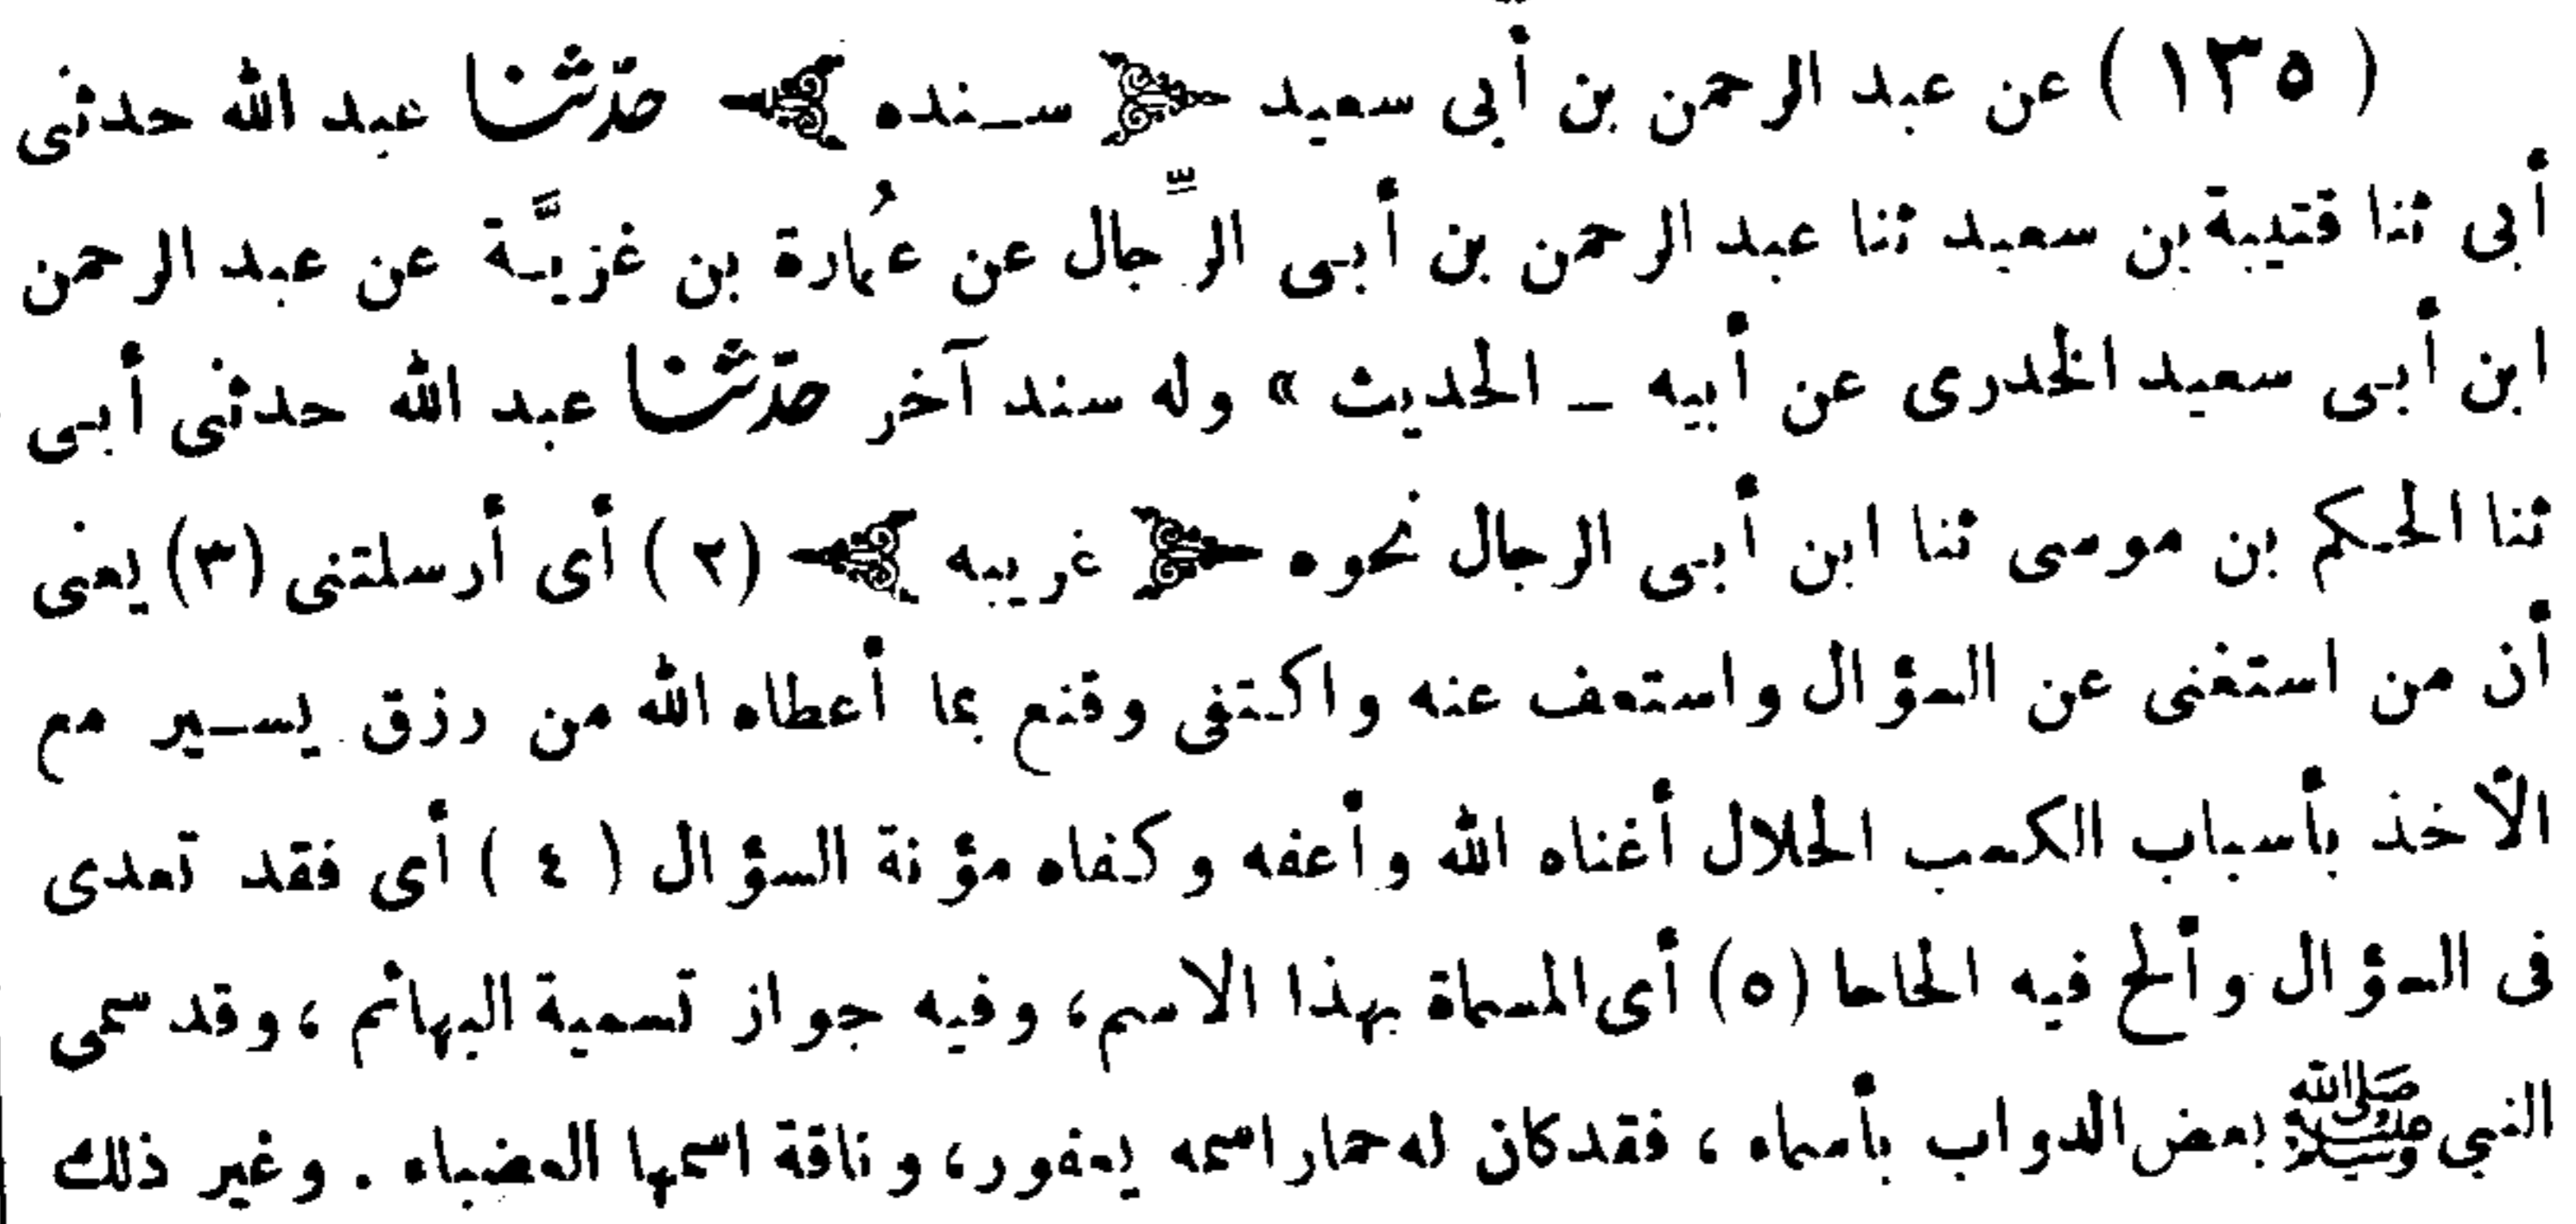 ( ١٣٥ ) عن عبد الرحمن بن أبى سعيد ﴿ سنده ﴾ حدّثنا عبد الله حدثنى
أبى ثنا قتيبة بن سعيد ثنا عبد الرحمن بن أبى الرِّجال عن عُمارة بن غزيَّة عن عبد الرحمن
ابن أبى سعيد الخدرى عن أبيه ـ الحديث » وله سند آخر حدّثنا عبد الله حدثنى أبى
ثنا الحكم بن موسى ثنا ابن أبى الرجال نحوه ﴿ غريبه ﴾ (٢) أى أرسلتنى (٣) يعنى
أن من استغنى عن السؤال واستعف عنه واكتفى وقنع بما أعطاه الله من رزق يسير مع
الأخذ بأسباب الكسب الحلال أغناه الله وأعفه وكفاه مؤنة السؤال ( ٤ ) أى فقد تعدى
فى السؤال وألح فيه الحاحا (٥) أى المسماة بهذا الاسم، وفيه جواز تسمية البهائم ، وقد سمى
النبى ﷺ بعض الدواب بأسماء ، فقد كان له حمار اسمه يعفور، وناقة اسمها العضباء . وغير ذلك